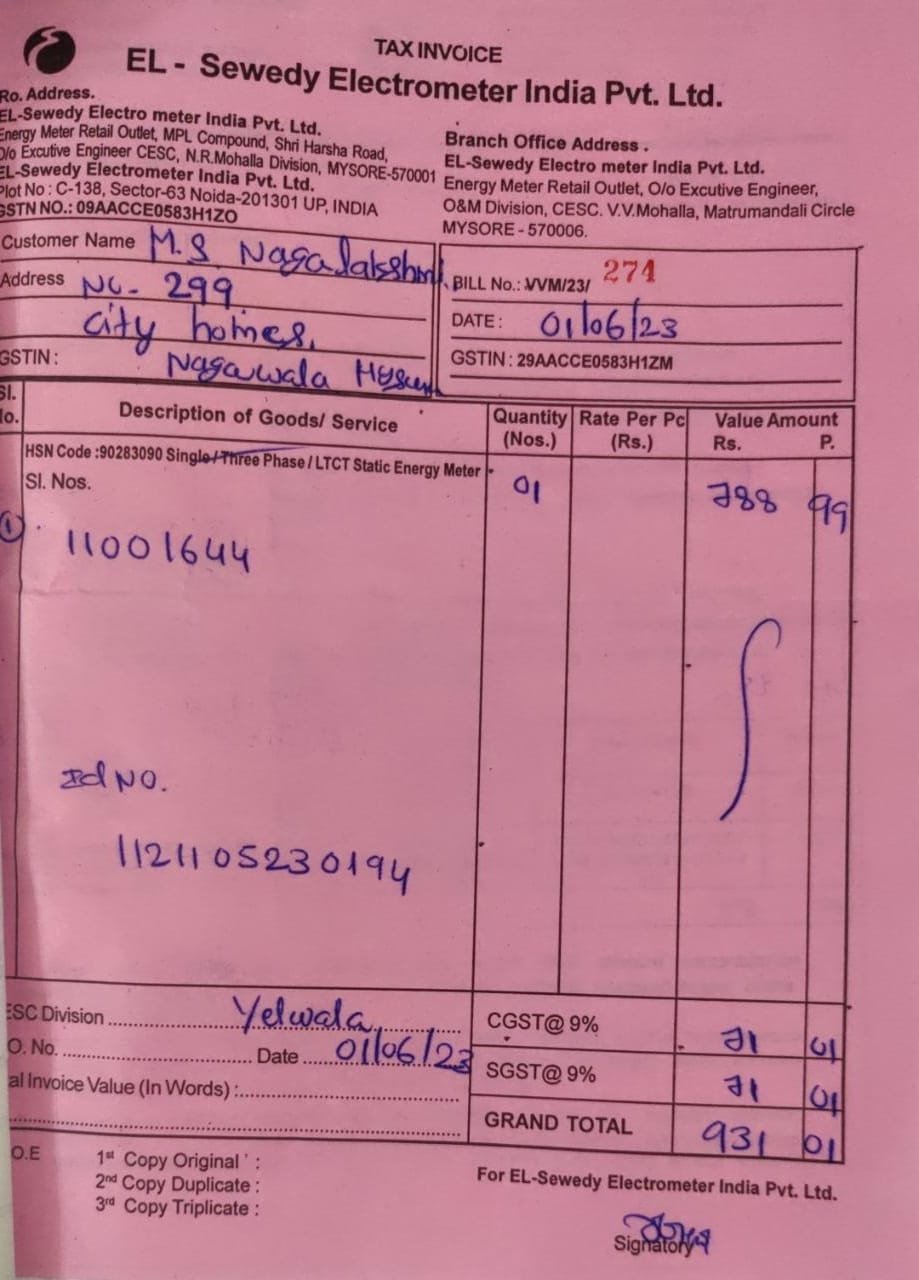 TAX INVOICE
EL - Sewedy Electrometer India Pvt. Ltd.
Ro. Address.
EL-Sewedy Electro meter India Pvt. Ltd.
Energy Meter Retail Outlet, MPL Compound, Shri Harsha Road,
O/o Excutive Engineer CESC, N.R.Mohalla Division, MYSORE-570001
EL-Sewedy Electrometer India Pvt. Ltd.
Plot No : C-138, Sector-63 Noida-201301 UP, INDIA
GSTN NO.: 09AACCE0583H1ZO
Branch Office Address .
EL-Sewedy Electro meter India Pvt. Ltd.
Energy Meter Retail Outlet, O/o Excutive Engineer,
O&M Division, CESC. V.V.Mohalla, Matrumandali Circle
MYSORE - 570006.
Customer Name M.S Nagalakshmi
Address No- 299
City homes,
GSTIN : Nagawala
BILL No.: VVM/23/ 274
DATE : 01/06/23
GSTIN : 29AACCE0583H1ZM
Sl. No. Description of Goods/ Service Quantity (Nos.) Rate Per Pc (Rs.) Value Amount Rs. P.
HSN Code :90283090 Single/Three Phase / LTCT Static Energy Meter
Sl. Nos. 01 788 99
1 11001644
Id NO.
1121105230194
ESC Division Yelwala
O. No. Date 01/06/23
al Invoice Value (In Words) :
CGST@ 9% 71 01
SGST@ 9% 71 01
GRAND TOTAL 931 01
O.E
1st Copy Original :
2nd Copy Duplicate :
3rd Copy Triplicate :
For EL-Sewedy Electrometer India Pvt. Ltd.
Signatory